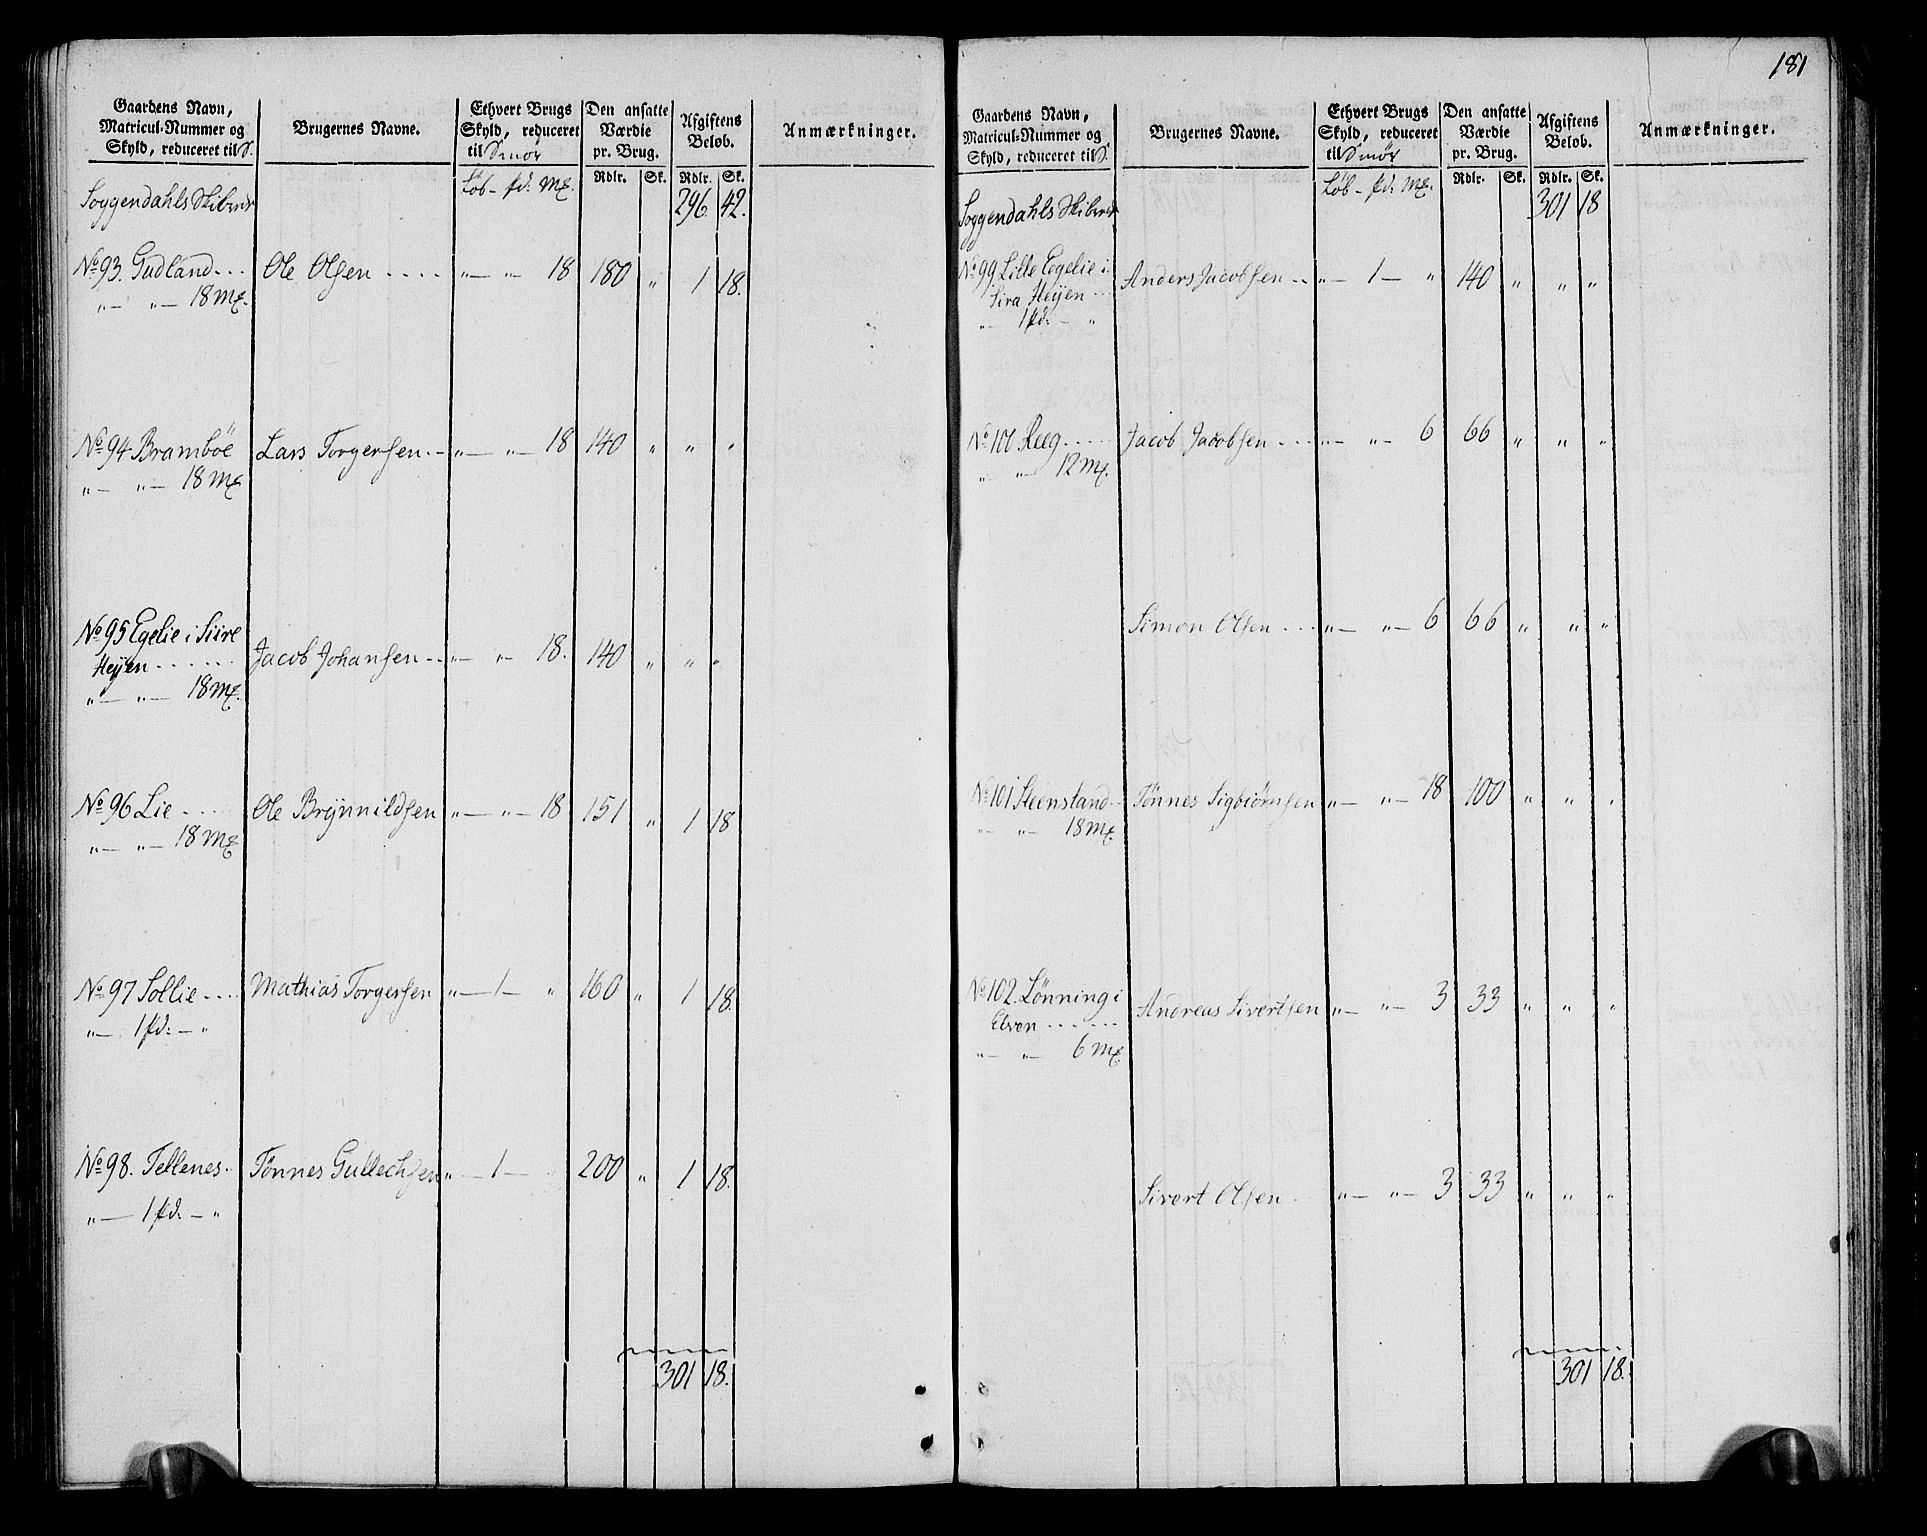 Gaardens Navn, Matricul-Nummer og Skyld, reduceret til S. | Brugernes Navne. | Ethvert Brugs Skyld, reduceret til Smør | Den ansatte Værdie pr. Brug. | Afgiftens Beløb. | Anmærkninger.
Løb - pd: Mk. | Rdlr. | Sk. | Rdlr. | Sk.
Soggendahls Skibred 296 42.
No 93. Gudland... Ole Olsen .... „ — „ 18 180 „ 1 18.
„ — „ — 18 Mk.
No 94 Bramböe Lars Torgersen.. „ — „ — 18 140 „ „ „
„ — „ — 18 Mk
No 95 Egelie i Siire
Heyen ...... Jacob Johansen.. „ — „ 18. 140 „ „ „
„ — „ — 18 Mk.
No 96 Lie .... Ole Brynnildsen „ — „ — 18 151 „ 1 18
„ — „ — 18 Mk
No 97 Sollie.... Mathias Torgersen „ — 1 — „ 160 „ 1 18.
„ — 1 pd: — „
No 98. Tellenes.. Tönnes Gullechsen „ — 1 — 200 „ 1 18.
„ — 1 pd: — „
301 18.
181
Gaardens Navn, Matricul-Nummer og Skyld, reduceret til S. | Brugernes Navne. | Ethvert Brugs Skyld, reduceret til Smør | Den ansatte Værdie pr. Brug. | Afgiftens Beløb. | Anmærkninger.
Løb - pd: Mk. | Rdlr. | Sk. | Rdlr. | Sk.
Soggendahls Skibred 301 18
No 99. Lille Eegelie i
Sira Heyen ... Anders Jacobsen .. „ — 1 — „ 140 „ „ „
„ — 1 pd: — „
No 100 Reeg..... Jacob Jacobsen .... „ — „ — 6 66 „ „ „
„ „ — 12 Mk.
Simon Olsen ... „ — „ — 6 66 „ „ „
No 101 Steensland.. Tönnes Sigbiörnsen „ — „ — 18 100 „ „ „
„ — „ — 18 Mk.
No 102. Lönning i
Elven ...... Andreas Sivertsen „ — „ — 3 33 „ „ „
„ — „ — 6 Mk.
Sivert Olsen . „ — „ — 3 33 „ „ „
301 18.